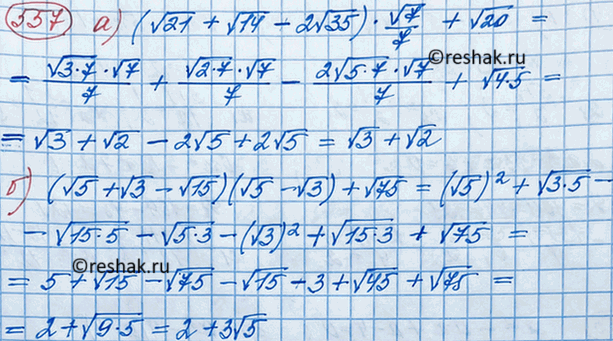 557 а) (√21 + √14 − 2√35) · √7/7 + √20 =
= √3·7·√7/7 + √2·7·√7/7 − 2√5·7·√7/7 + √4·5 =
©reshak.ru
= √3 + √2 − 2√5 + 2√5 = √3 + √2
б) (√5 + √3 − √15)(√5 − √3) + √75 = (√5)² + √3·5 −
− √15·5 − √5·3 − (√3)² + √15·3 + √75 =
©reshak.ru
= 5 + √15 − √75 − √15 − 3 + √45 + √75 =
= 2 + √9·5 = 2 + 3√5